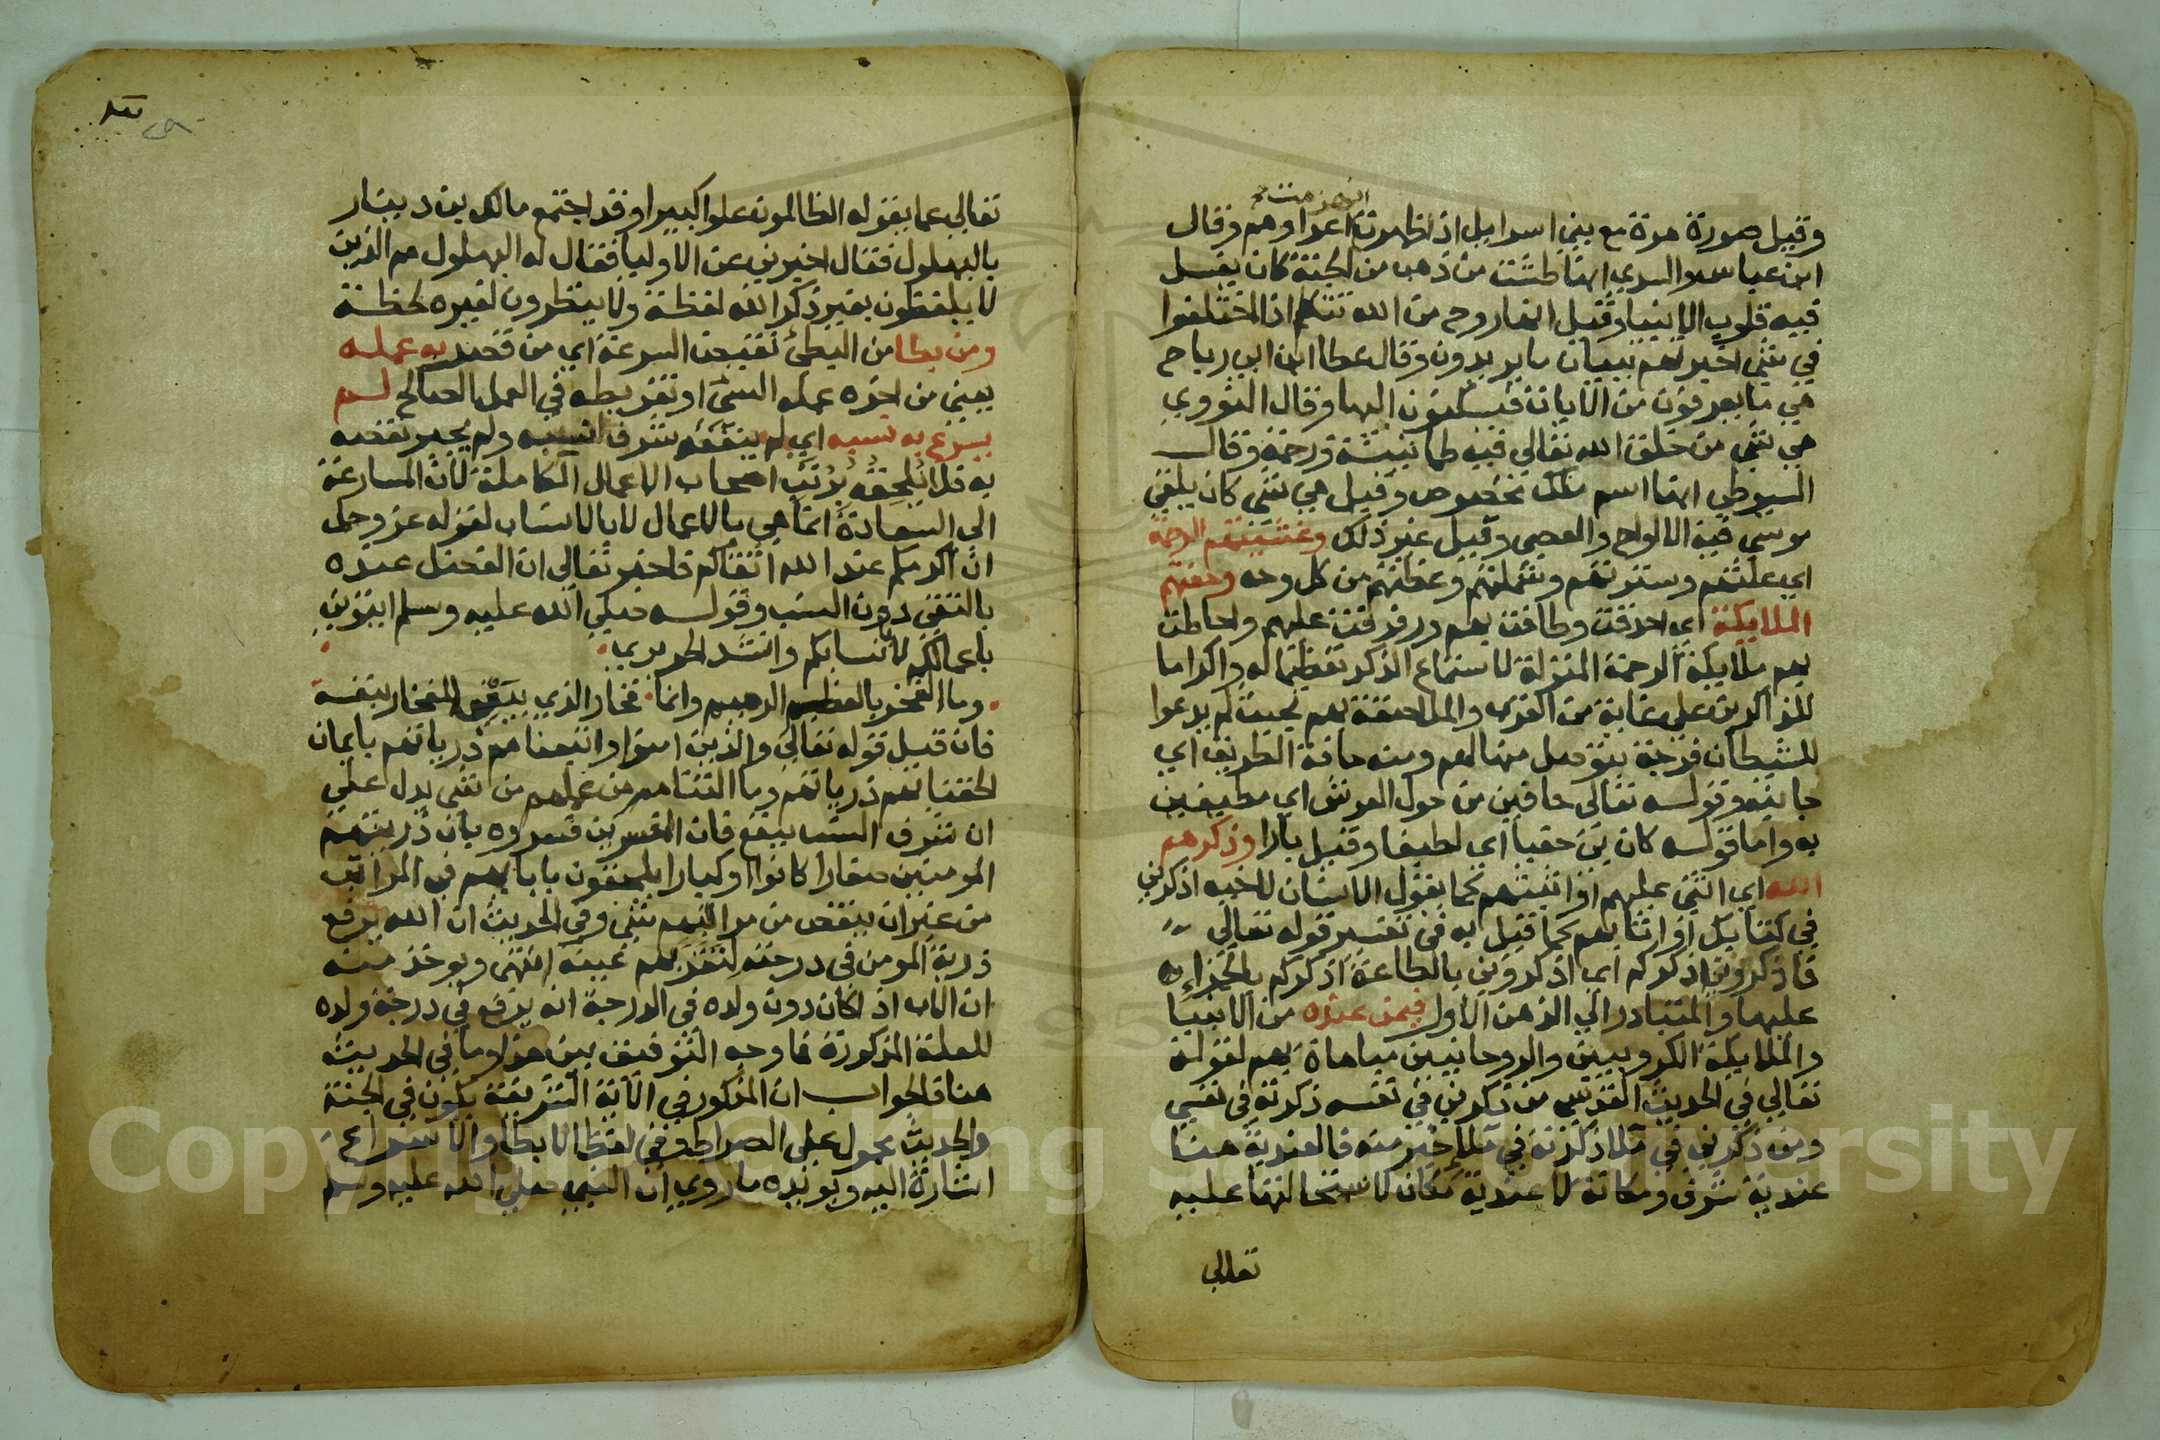 انهزمت
وقيل صورة هرة مع بني اسرايل اذا ظهرت اعداوهم وقال
ابن عباس والسدي انها طشت من ذهب من الجنة كان يغسل
فيه قلوب الانبيا وقيل انها روح من الله تتكلم اذا اختلفوا
في شي اخبرتهم ببيان ما يريدون وقال عطا ابن ابي رباح
هي ما يعرفون من الايات فيسكنون اليها وقال النووي
هي شي من خلق الله تعالى فيه طمانينة ورحمة وقال
السيوطي انها اسم ملك مخصوص وقيل هي شي كان يلقي
موسى فيه الالواح والعصى وقيل غير ذلك وغشيتهم الرحمة
اي علتهم وسترتهم وشملتهم وغطتهم من كل وجه وحفتهم
الملايكة اي احدقت وطافت بهم ورفرفت عليهم واحاطت
بهم ملايكة الرحمة المنزلة لاستماع الذكر تعظيما له واكراما
للذاكرين على غاية من القرب والملاصقة بهم بحيث لم يدعوا
للشيطان فرجة يتوصل منها لهم ومنه حافة الطريق اي
جانبه وقوله تعالى حافين من حول العرش اي مطيفين
به واما قوله كان بي حفيا اي لطيفا وقيل بارا وذكرهم
الله اي اثنى عليهم او اثيبهم كما يقول الانسان لاخيه اذكرني
في كتابك او اثابهم كما قيل به في تفسير قوله تعالى
فاذكروني اذكركم اي اذكروني بالطاعة اذكركم بالجزاء
عليها والمتبادر الى الذهن الاول فيمن عنده من الانبيا
والملايكة الكروبيين والروحانيين مباهاة بهم لقوله
تعالى في الحديث القدسي من ذكرني في نفسه ذكرته في نفسي
ومن ذكرني في ملا ذكرته في ملا خير منه فالعندية هنا
عندية شرف ومكانة لا عندية مكان لاستحالتها عليه
تعالى
تعالى عما يقوله الظالمون علوا كبيرا وقد اجتمع مالك بن دينار
بالبهلول فقال اخبرني عن الاوليا فقال له البهلول هم الذين
لا يلفظون بغير ذكر الله لفظة ولا ينظرون لغيره لحظة
ومن بطا من البطئ نقيض السرعة اي من قصر به عمله
يعني من اخره عمله السئ او تفريطه في العمل الصالح لم
يسرع به نسبه اي لم ينفعه شرف نسبه ولم يجبر نقصه
به فلا يلحقه برتب اصحاب الاعمال الكاملة لان المسارعة
الى السعادة انما هي بالاعمال لا بالانساب لقوله عز وجل
ان اكرمكم عند الله اتقاكم فاخبر تعالى ان الفضل عنده
بالتقى دون النسب وقوله صلى الله عليه وسلم ايتوني
باعمالكم لا بانسابكم وانشد الحريري
وما الفخر بالعظم الرميم وانما فخار الذي يبغي الفخار بنفسه
فان قيل قوله تعالى والذين امنوا واتبعناهم ذرياتهم بايمان
الحقنا بهم ذرياتهم وما التناهم من عملهم من شي يدل على
ان شرف النسب ينفع فان المفسرين فسروه بان ذريتهم
المومنين صغارا كانوا او كبارا يلحقون بابايهم في المراتب
من غير ان ينقص من مراتبهم شي وفي الحديث ان الله يرفع
ذرية المومن في درجته لتقر بهم عينه انتهى ويوخذ منه
ان الاب اذا كان دون ولده في الدرجة انه يرفع في درجة ولده
للعلة المذكورة فما وجه التوفيق بين هذا وما في الحديث
هنا فالجواب ان المذكور في الاية الشريفة يكون في الجنة
والحديث محمول على الصراط وفي لفظ الابطا والاسراع
اشارة اليه ويويده ما روي ان النبي صلى الله عليه وسلم
Copyright © King Saud University